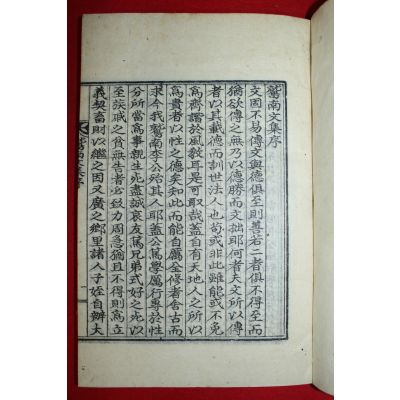 鷲南文集序
文固不易傳文與德俱至則善若二者俱不得至而
猶欲傳之無乃以德勝而文拙耶何者夫文所以傳
者以其載德而訓世法人也苟或非此雖能或不免
爲齊謟於風敎耳是可取哉盖自有天地人之所以
爲貴者以性之德矣知此而能自厲金修者舍古而
求今我鷲南李公殆其人耶盖公篤學厲行專於性
分所當爲事親生死盡誠哀友篤兄弟式好之此以
至族戚之貧無告者必致力周急猶且不得則爲立
義契畜財以繼之因又廣之鄕里諸人子姪自辦大
鷲南文集序